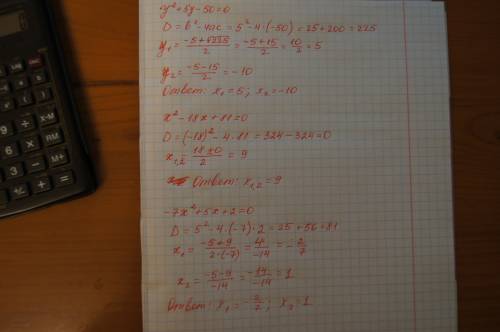 y² + 5y - 50 = 0
D = b² - 4ac = 5² - 4·(-50) = 25 + 200 = 225
y₁ = (-5 + √225)/2 = (-5 + 15)/2 = 10/2 = 5
y₂ = (-5 - 15)/2 = -10
Ответ: x₁ = 5; x₂ = -10
x² - 18x + 81 = 0
D = (-18)² - 4·81 = 324 - 324 = 0
x₁,₂ = (18 ± 0)/2 = 9
Ответ: x₁,₂ = 9
-7x² + 5x + 2 = 0
D = 5² - 4·(-7)·2 = 25 + 56 = 81
x₁ = (-5 + 9)/(2·(-7)) = 4/-14 = -2/7
x₂ = (-5 - 9)/-14 = -14/-14 = 1
Ответ: x₁ = -2/7; x₂ = 1
X-M
RM